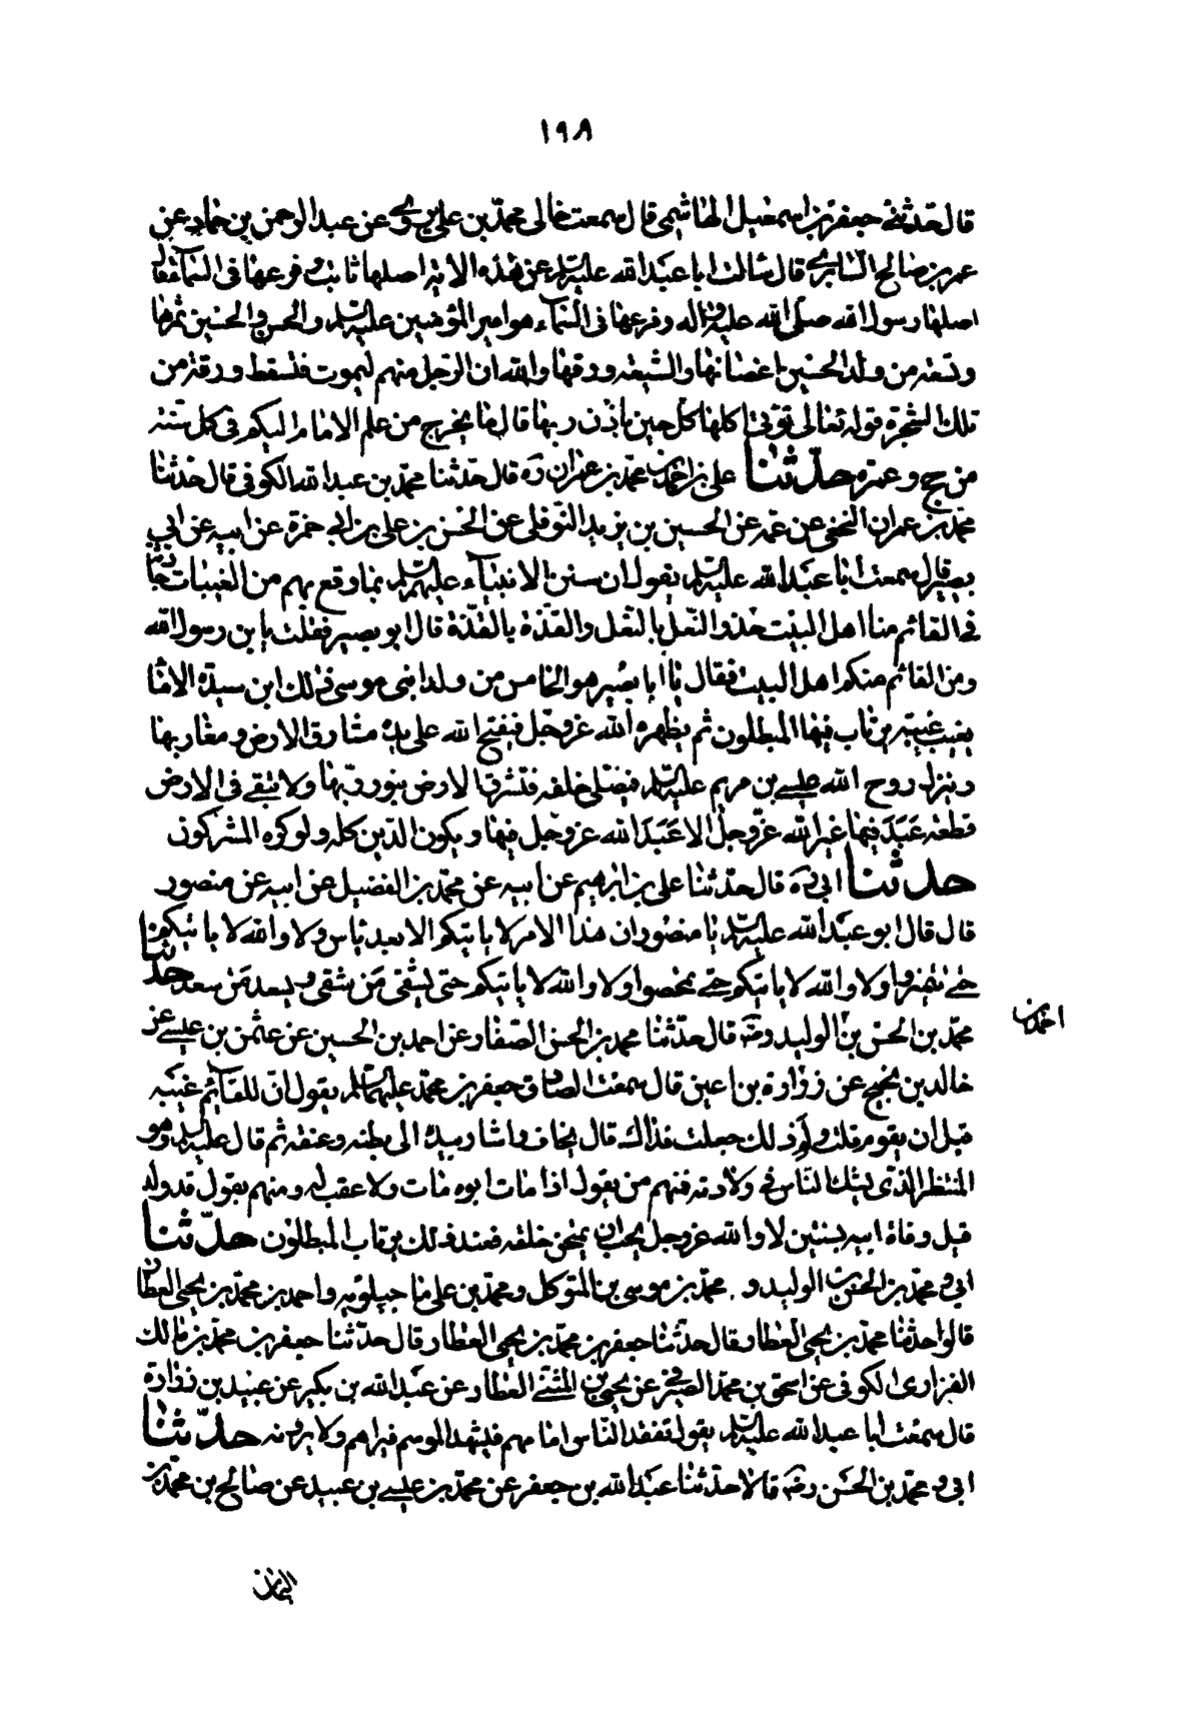 ١٩٨
قال حدثني جعفر بن اسمعيل الهاشمي قال سمعت خالى محمد بن على يروى عن عبد الرحمن بن حماد عن
عمر بن صالح السابرى قال سالت ابا عبد الله عليه السلم عن هذه الاية اصلها ثابت وفرعها فى السماء فقال
اصلها رسول الله صلى الله عليه واله وفرعها فى السماء هو امير المؤمنين عليه السلم والحسن والحسين ثمرها
وتسعة من ولد الحسين اغصانها والشيعة ورقها والله ان الرجل منهم ليموت فتسقط ورقة من
تلك الشجرة قوله تعالى تؤتى اكلها كل حين باذن ربها قال ما يخرج من علم الامام اليكم فى كل سنة
من حج وعمرة حدثنا على بن احمد بن محمد بن عمران ره قال حدثنا محمد بن عبد الله الكوفى قال حدثنا
محمد بن عمران النخعى عن عمه عن الحسين بن يزيد النوفلى عن الحسن بن على بن ابى حمزة عن ابيه عن ابى
بصير قال سمعت ابا عبد الله عليه السلم يقول ان سنن الانبياء عليهم السلم بما وقع بهم من الغيبات حادثة
فى القائم منا اهل البيت حذو النعل بالنعل والقذة بالقذة قال ابو بصير فقلت يا بن رسول الله
ومن القائم منكم اهل البيت فقال يا ابا بصير هو الخامس من ولد ابنى موسى ذلك ابن سيدة الاماء
يغيب غيبة يرتاب فيها المبطلون ثم يظهره الله عز وجل فيفتح الله على يده مشارق الارض ومغاربها
وينزل روح الله عيسى بن مريم عليه السلم فيصلى خلفه فتشرق الارض بنور ربها ولا تبقى فى الارض
قطعة عبد فيها غير الله عز وجل الا عبد الله عز وجل فيها ويكون الدين كله ولو كره المشركون
حدثنا ابى ره قال حدثنا على بن ابرهيم عن ابيه عن محمد بن الفضيل عن ابيه عن منصور
قال قال ابو عبد الله عليه السلم يا منصور ان هذا الامر لا ياتيكم الا بعد ياس ولا والله لا ياتيكم
حتى تميزوا ولا والله لا ياتيكم حتى تمحصوا ولا والله لا ياتيكم حتى يشقى من شقى ويسعد من سعد حدثنا
احمد بن
محمد بن الحسن بن الوليد رضه قال حدثنا محمد بن الحسن الصفار عن احمد بن الحسين عن عثمن بن عيسى عن
خالد بن نجيح عن زرارة بن اعين قال سمعت الصادق جعفر بن محمد عليهما السلم يقول ان للقائم غيبة
قبل ان يقوم قلت ولم ذلك جعلت فداك قال يخاف واشار بيده الى بطنه وعنقه ثم قال عليه السلم وهو
المنتظر الذى يشك الناس فى ولادته فمنهم من يقول اذا مات ابوه مات ولا عقب له ومنهم يقول قد ولد
قبل وفاة ابيه بسنتين لا والله عز وجل يحب ان يمتحن خلقه فعند ذلك يرتاب المبطلون حدثنا
ابى و محمد بن الحسن بن الوليد و محمد بن موسى بن المتوكل ومحمد بن على ماجيلويه واحمد بن محمد بن يحيى العطار
قالوا حدثنا محمد بن يحيى العطار وقال حدثنا جعفر بن محمد بن يحيى العطار وقال حدثنا جعفر بن محمد بن مالك
الفزارى الكوفى عن اسحق بن محمد الصيرفى عن يحيى بن المثنى العطار عن عبد الله بن بكير عن عبيد بن زرارة
قال سمعت ابا عبد الله عليه السلم يقول تفقد الناس امامهم فيشهد الموسم فيراهم ولا يرونه حدثنا
ابى و محمد بن الحسن رضه قالا حدثنا عبد الله بن جعفر عن محمد بن عيسى بن عبيد عن صالح بن محمد عن